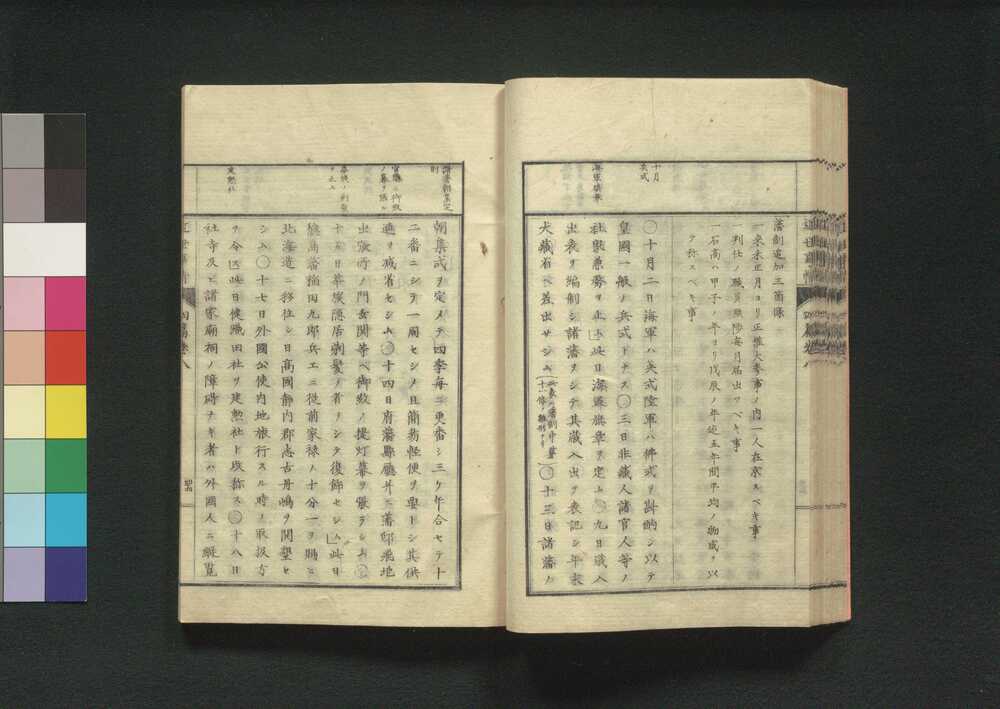 藩制追加三箇條
一來未正月ヨリ正權大參事ノ内一人在京スベキ事
一判任ノ職員黜陟每月届出ツベキ事
一石高ハ甲子ノ年ヨリ戊辰ノ年迄五年間平均ノ物成ヲ以
テ稱スベキ事
十月
兵式
〇十月二日海軍ハ英式陸軍ハ佛式ヲ斟酌シ以テ
皇國一般ノ兵式トナス〇三日非藏人諸官人等ノ
海軍旗章
社職兼務ヲ止ム此日海軍旗章ヲ定ム〇九日歳入
出表ヲ編制シ諸藩ヲシテ其歳入出ヲ表記シ年末
大藏省ヘ差出サシム〇十三日諸藩ノ
諸藩朝集定
則
朝集式ヲ定メテ四季每ニ更番シ三ケ年合セテ十
二番ニシテ一周セシメ且簡易輕便ヲ要トシ其供
官廳ニ御紋
ノ幕ヲ張ル
連ヲ減省セシム〇十四日府藩縣廳幷ニ藩邸飛地
出張所ノ門玄關等ヘ御紋ノ提灯幕ヲ張ラシム〇
十六日華族隱居剃髮ノ者ヲシテ復飾セシム此日
德島藩稻田九郎兵エニ從前家祿ノ十分一ヲ賜ヒ
北海道ニ移住シ日高國静内郡志古丹嶋ヲ開墾セ
シム〇十七日外國公使内地旅行スル時ノ取扱方
建勲社
ヲ令ス此日健織田社ヲ建勲社ト改稱ス〇十八日
社寺及ヒ諸家廟祠ノ障碍ナキ者ハ外國人ニ縱覧